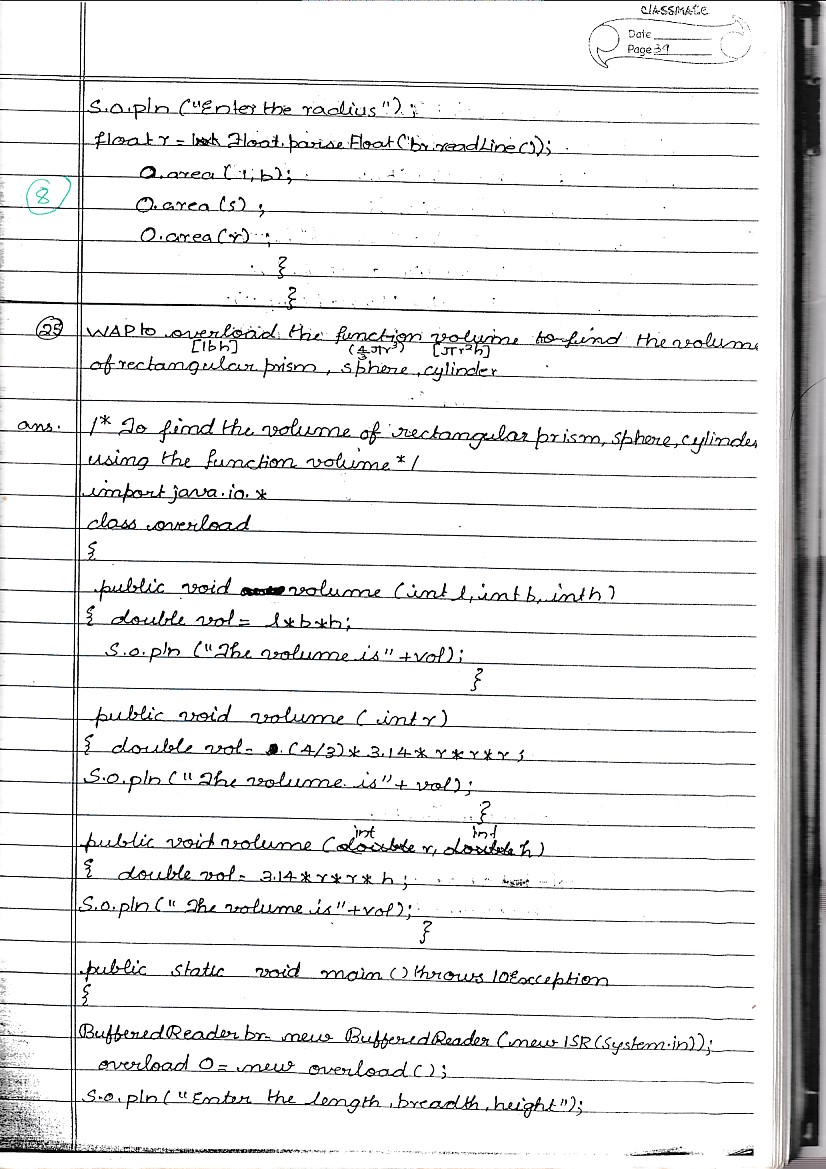 CLASSMATE
Date
Page 39
S.o.pln ("Enter the radius");
float r = Float.parseFloat(br.readLine());
O.area(l,b);
8
O.area(s);
O.area(r);
}
}
25 WAP to overload the function volume to find the volume
[lbh] (4/3 πr³) [πr²h]
of rectangular prism, sphere, cylinder
ans. /* To find the volume of rectangular prism, sphere, cylinder
using the function volume */
import java.io.*
class overload
{
public void volume (int l, int b, int h)
{ double vol = l*b*h;
S.o.pln ("The volume is"+vol);
}
public void volume (int r)
{ double vol = (4/3)*3.14*r*r*r;
S.o.pln ("The volume is"+vol);
}
int int
public void volume (double r, double h)
{ double vol = 3.14*r*r*h;
S.o.pln ("The volume is"+vol);
}
public static void main () throws IOException
{
BufferedReader br = new BufferedReader (new ISR(System.in));
overload O = new overload();
S.o.pln ("Enter the length, breadth, height");